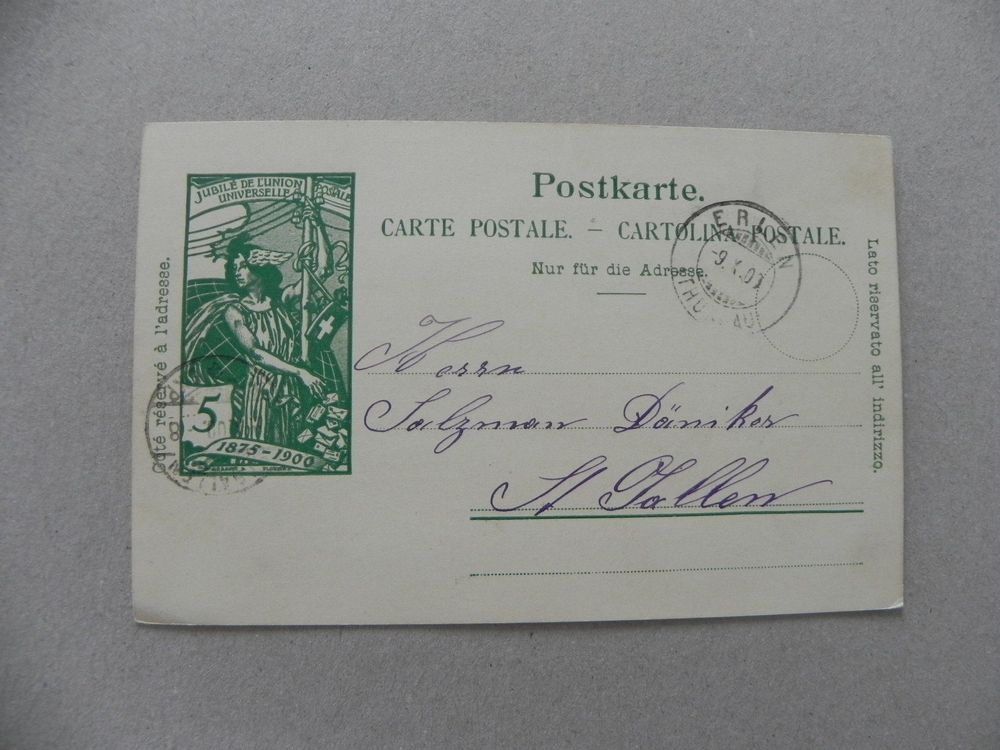 JUBILÉ DE L'UNION POSTALE
UNIVERSELLE
5
1875-1900
Postkarte.
CARTE POSTALE. — CARTOLINA POSTALE.
Nur für die Adresse.
Côté réservé à l'adresse.
Lato riservato all' indirizzo.
Herrn
Salzman Däniker
St Gallen